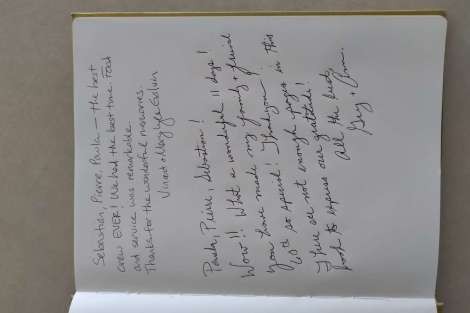 Sebastian, Pierre, Paula — the best
crew EVER! We had the best time. Food
and service was remarkable.
Thanks for the wonderful memories.
Vincent + Mary Lye
Paula, Pierre, Sebastian!
Wow!! What a wonderful 11 days!
You have made my family + friends
60th so special! Thankyou!
There are not enough pages in this
book to express our gratitude!
All the best,
Greg +